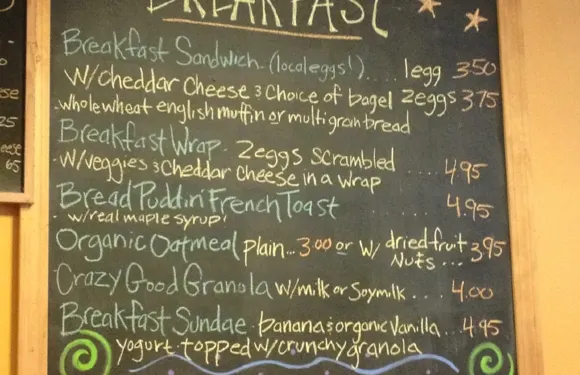 BREAKFAST
Breakfast Sandwich (local eggs!).... 1egg 3.50
w/cheddar cheese & choice of bagel 2eggs 3.75
whole wheat english muffin or multigrain bread
Breakfast Wrap 2eggs scrambled
w/veggies & cheddar cheese in a wrap .... 4.95
Bread Puddin' French Toast .... 4.95
w/real maple syrup!
Organic Oatmeal plain... 3.00 or w/ dried fruit 3.95
nuts ...
Crazy Good Granola w/milk or Soymilk .... 4.00
Breakfast Sundae banana & organic Vanilla ...4.95
yogurt topped w/crunchy granola
ese
25
eese
65